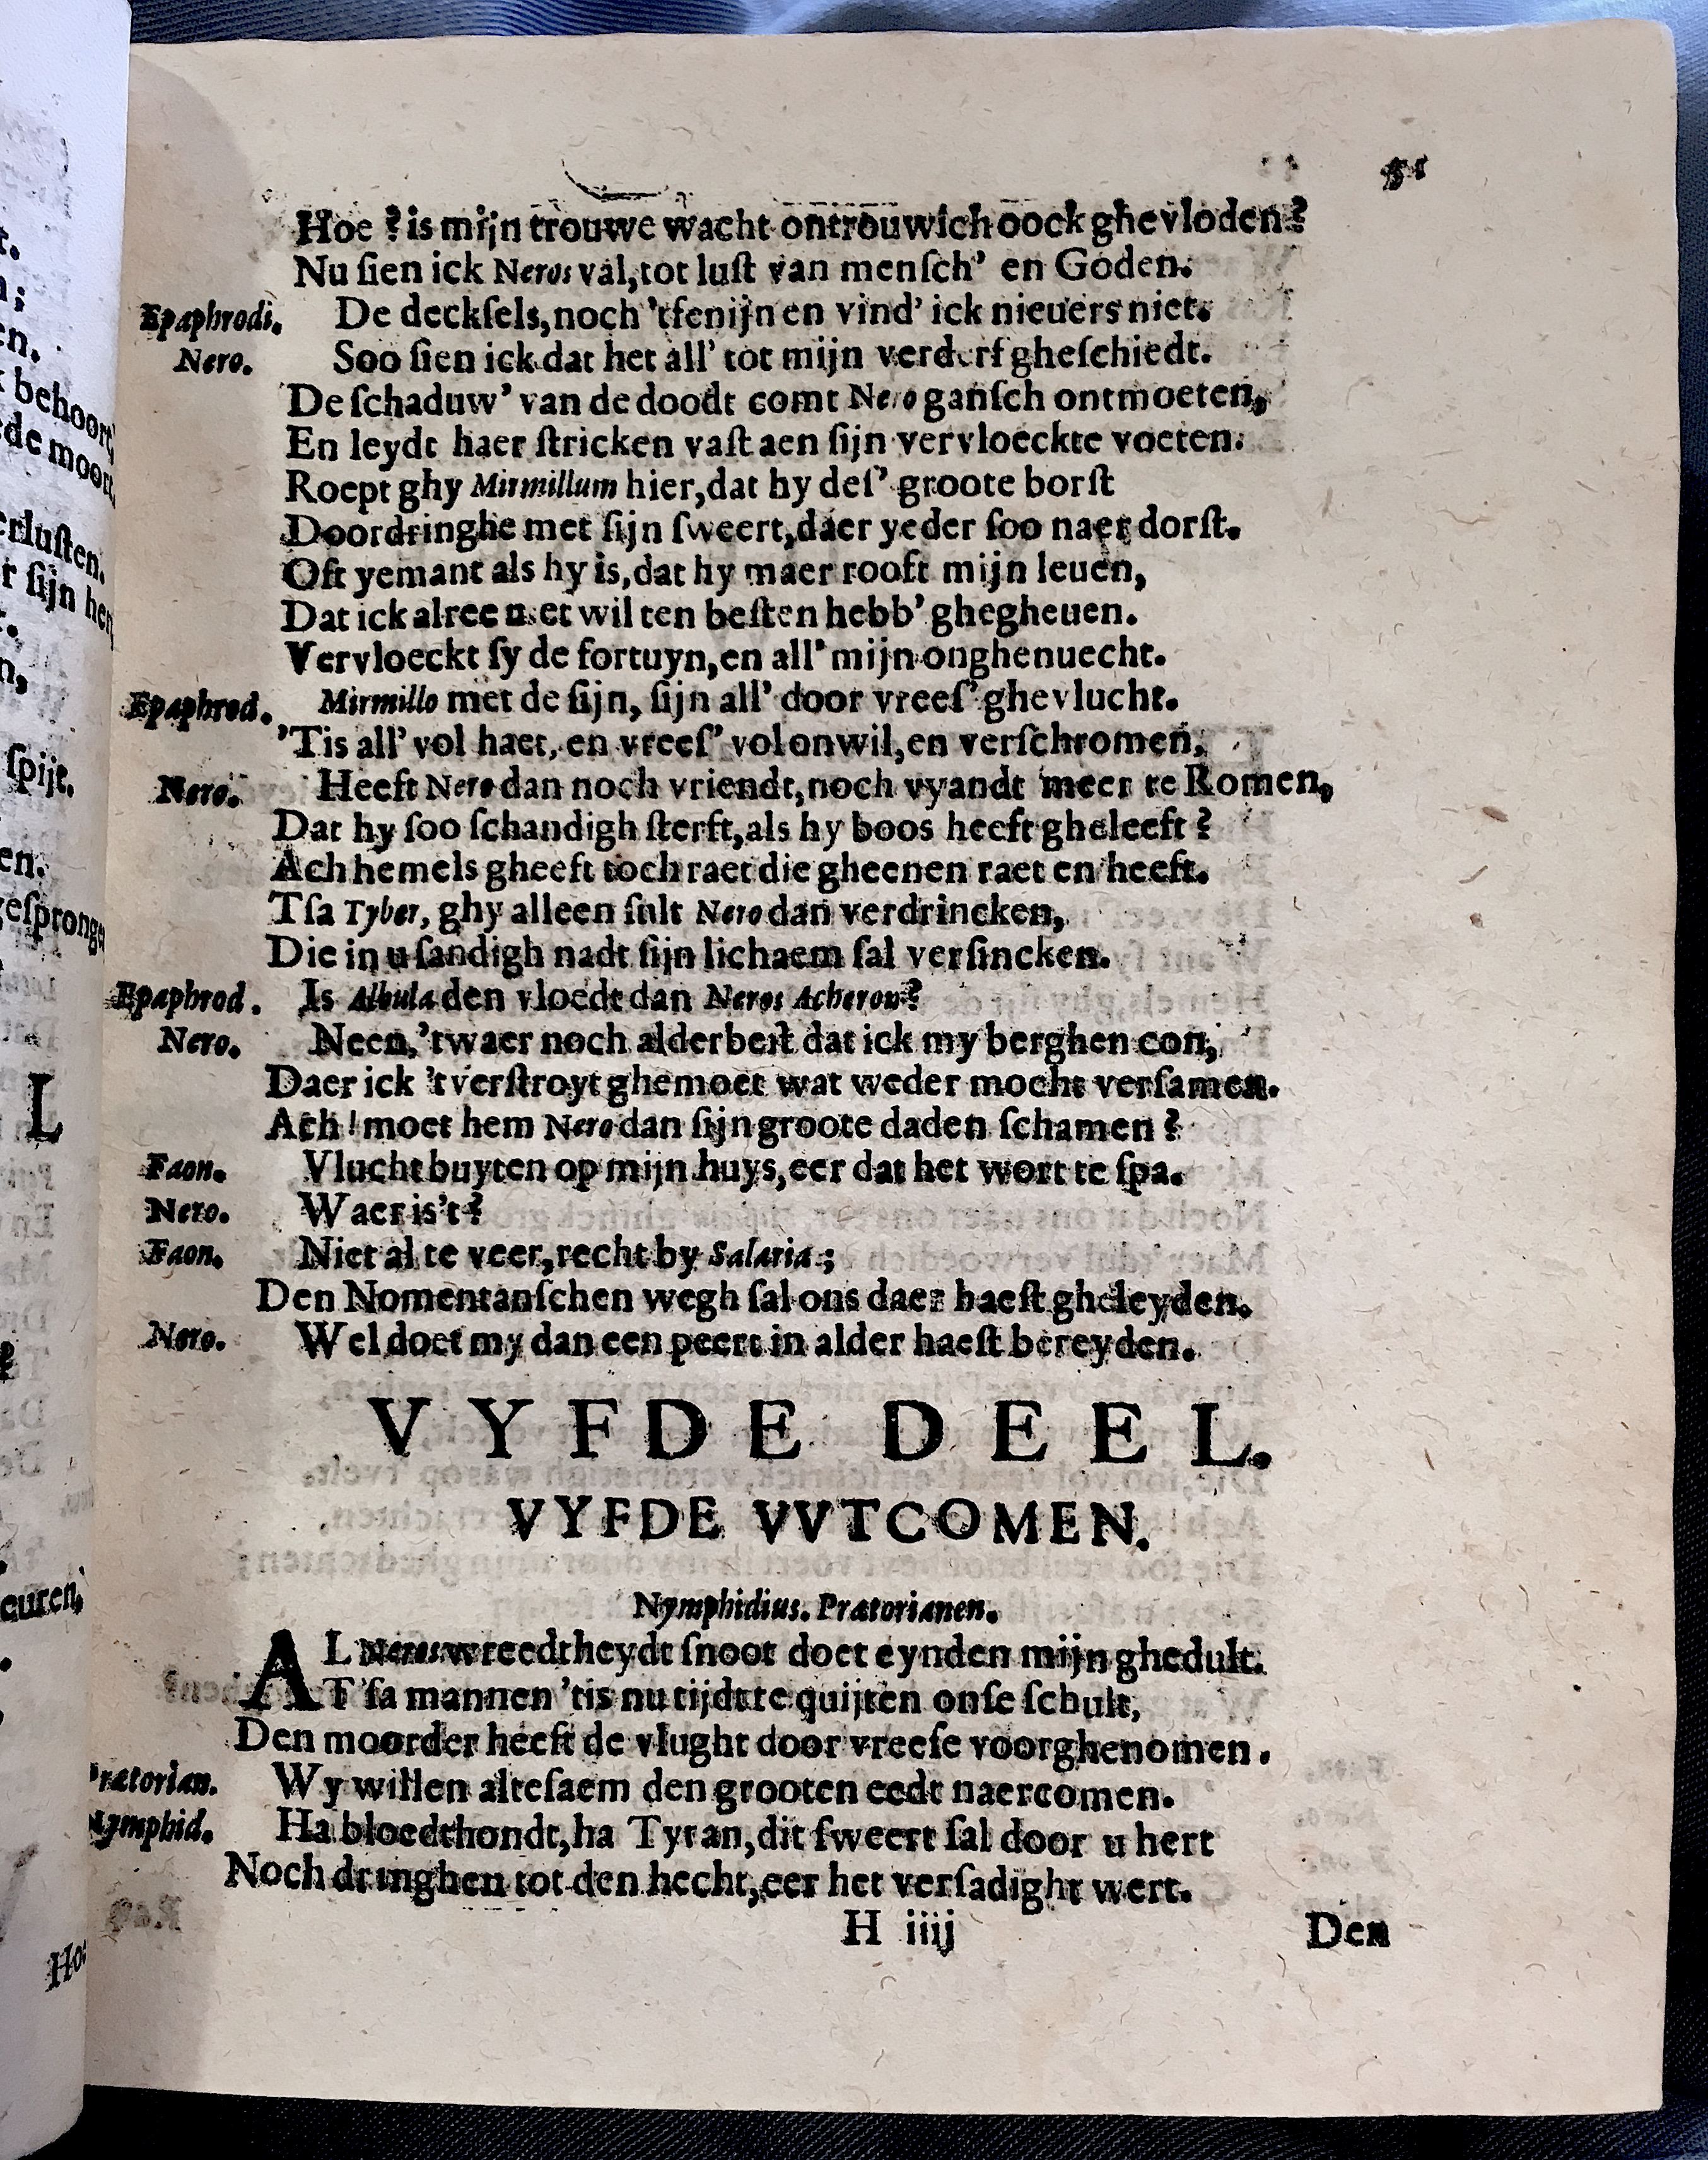 51
Hoe ? is mijn trouwe wacht ontrouwich oock ghevloden?
Nu ſien ick Neros val, tot luſt van menſch’ en Goden.
Epaphrodi. De deckſels, noch ’tfenijn en vind’ ick nieuers niet.
Nero. Soo ſien ick dat het all’ tot mijn verderf gheſchiedt.
De ſchaduw’ van de doodt comt Nero ganſch ontmoeten,
En leydt haer ſtricken vaſt aen ſijn vervloeckte voeten.
Roept ghy Mirmillum hier, dat hy deſ’ groote borſt
Doordringhe met ſijn ſweert, daer yeder ſoo naer dorſt.
Oft yemant als hy is, dat hy maer rooft mijn leuen,
Dat ick alree met wil ten beſten hebb’ ghegheuen.
Vervloeckt ſy de fortuyn, en all’ mijn onghenuecht.
Epaphrod. Mirmillo met de ſijn, ſijn all’ door vreeſ’ ghevlucht.
’Tis all’ vol haet, en vreeſ’ vol onwil, en verſchromen.
Nero. Heeft Nero dan noch vriendt, noch vyandt meer te Romen,
Dat hy ſoo ſchandigh ſterft, als hy boos heeft gheleeft ?
Ach hemels gheeft toch raet die gheenen raet en heeft.
Tſa Tyber, ghy alleen ſult Nero dan verdrincken,
Die in u ſandigh nadt ſijn lichaem ſal verſincken.
Epaphrod. Is Albula den vloedt dan Neros Acheron?
Nero. Neen, ’twaer noch alderbeſt dat ick my berghen con,
Daer ick ’t verſtroyt ghemoet wat weder mocht verſamen.
Ach ! moet hem Nero dan ſijn groote daden ſchamen ?
Faon. Vlucht buyten op mijn huys, eer dat het wort te ſpa.
Nero. Waer is’t ?
Faon. Niet al te veer, recht by Salaria ;
Den Nomentanſchen wegh ſal ons daer haeſt gheleyden.
Nero. Wel doet my dan een peert in alder haeſt bereyden.
VYFDE DEEL.
VYFDE VVTCOMEN.
Nymphidius. Prætorianen.
AL Neros wreedtheydt ſnoot doet eynden mijn ghedult.
T’ſa mannen ’tis nu tijdt te quijten onſe ſchult,
Den moorder heeft de vlught door vreeſe voorghenomen.
Prætorian. Wy willen alteſaem den grooten eedt naercomen.
Nymphid. Ha bloedthondt, ha Tyran, dit ſweert ſal door u hert
Noch dringhen tot den hecht, eer het verſadight wert.
H iiij Den